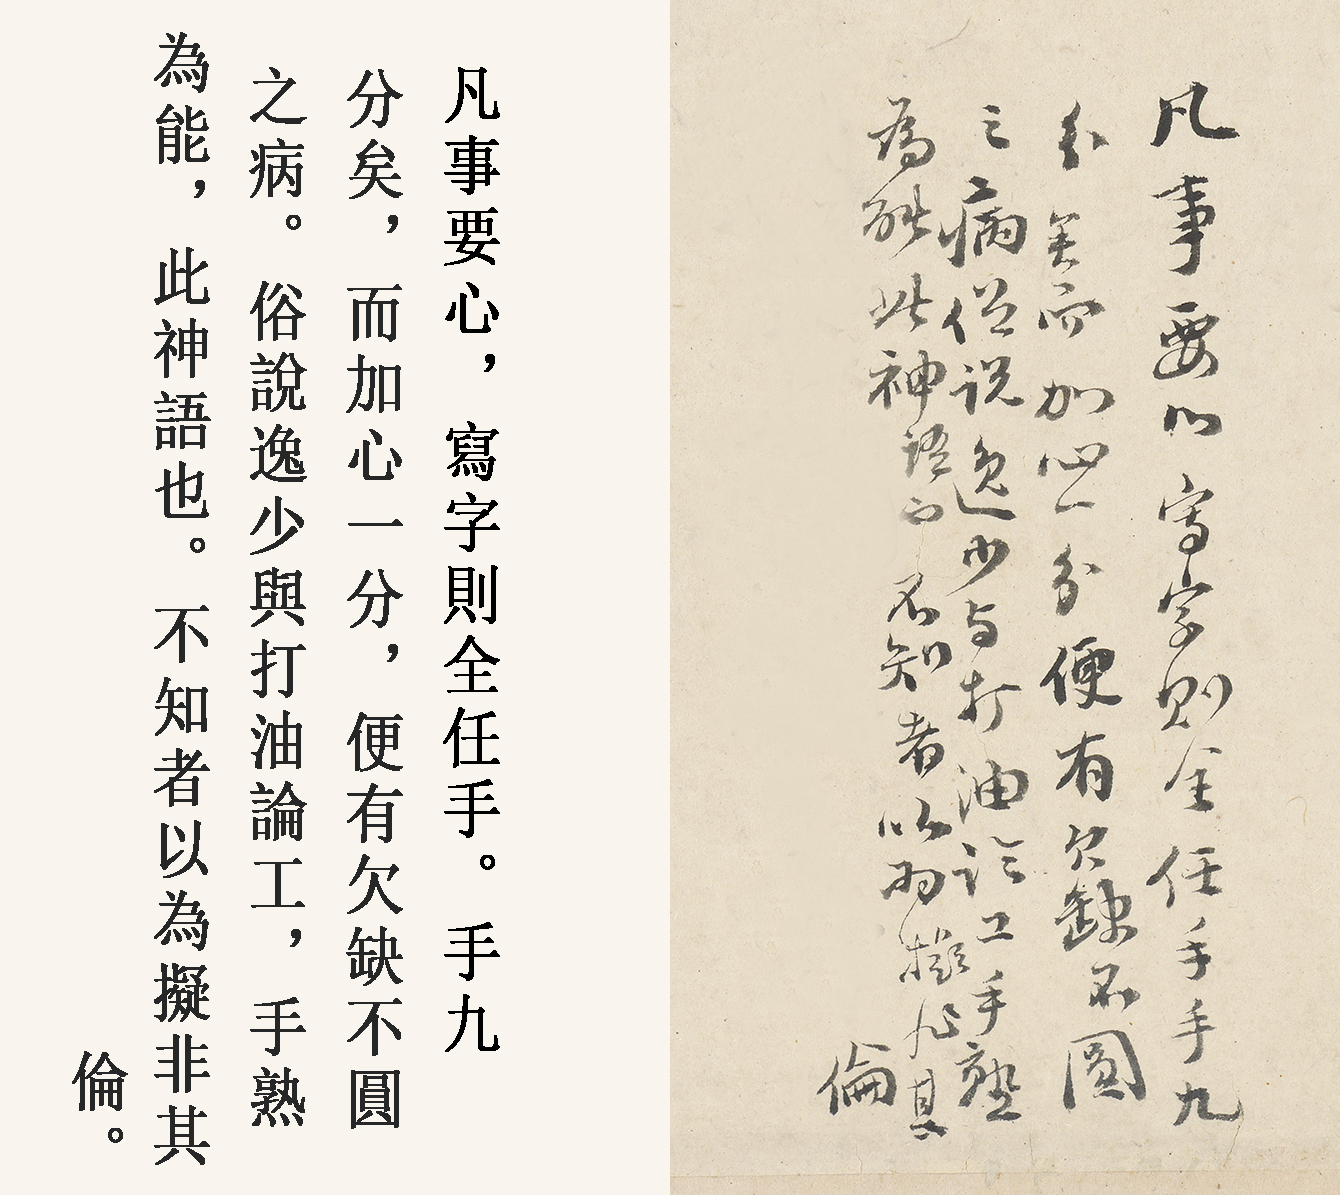 凡事要心，寫字則全任手。手九
分矣，而加心一分，便有欠缺不圓
之病。俗說逸少與打油論工，手熟
為能，此神語也。不知者以為擬非其
倫。
凡事要心寫字則全任手手九
分矣而加心一分便有欠缺不圓
之病俗說逸少与打油論工手熟
為能此神語也不知者以為擬非其
倫